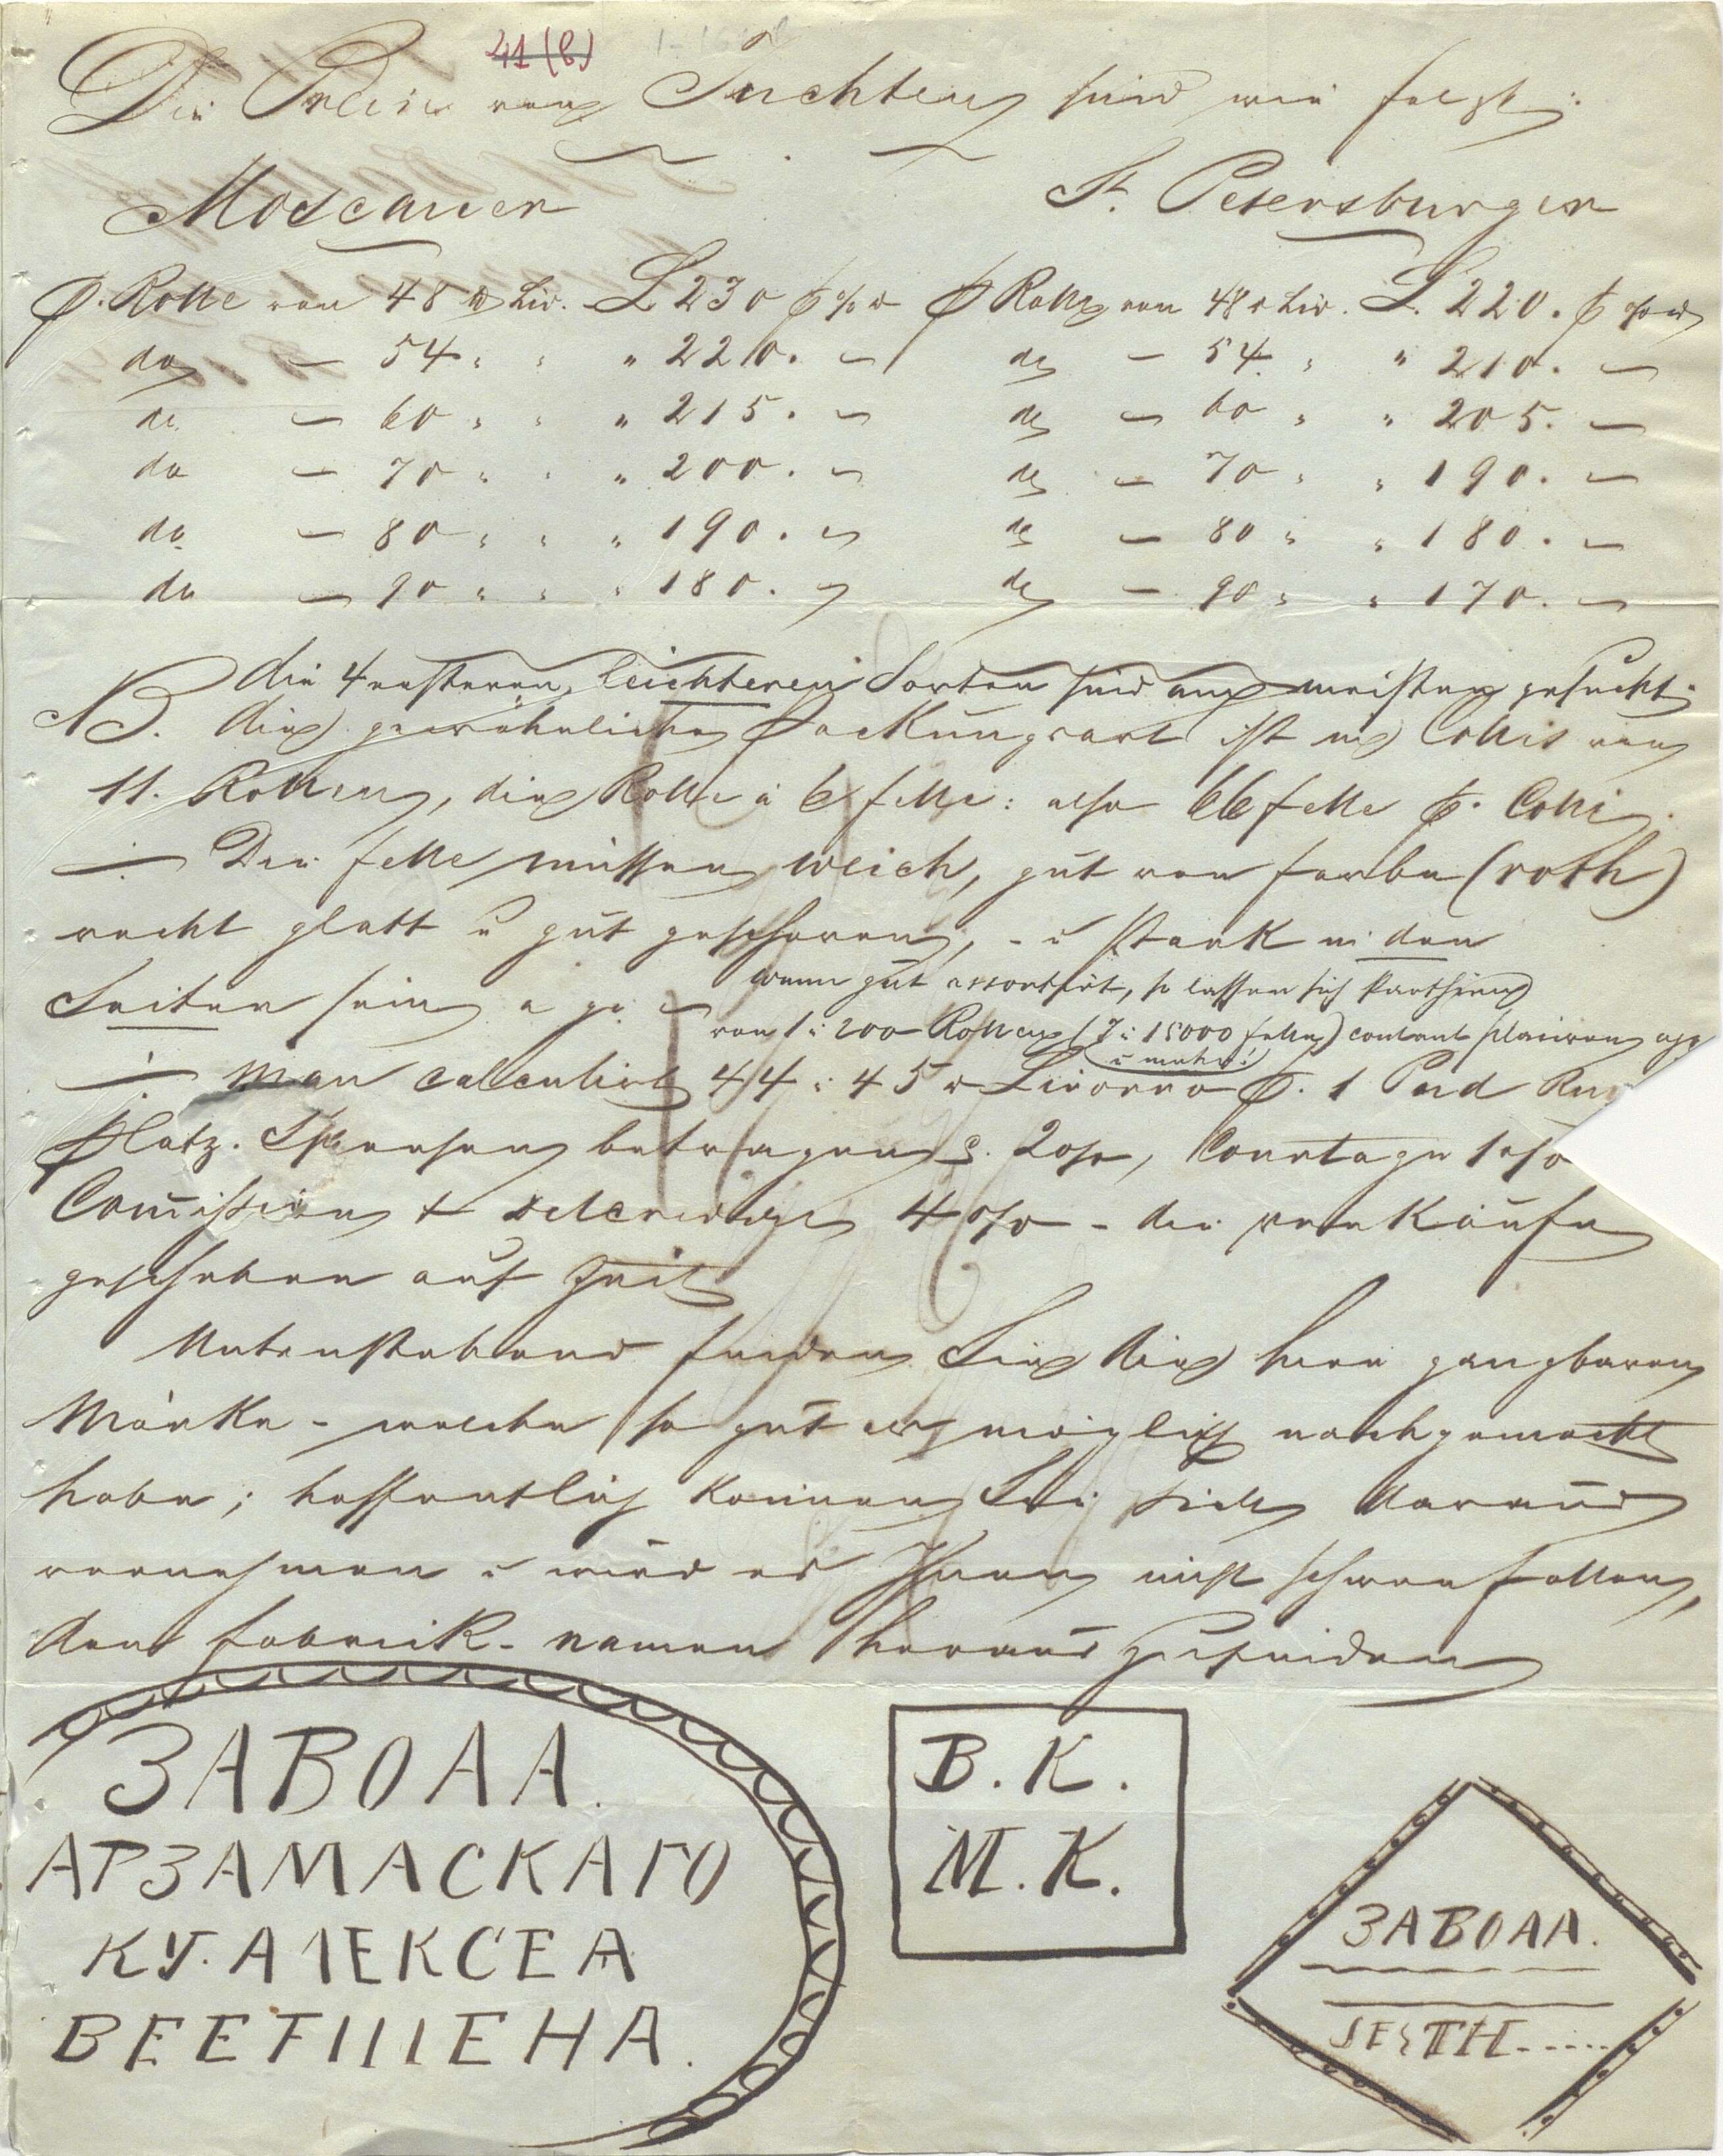 41 (b)
Die Preise von Juchten sind wie folgt:
Moscauer
St. Petersburger
p. Rolle von 48 ℔ Liv. L 230 p % ℔
p Rolle von 48 ℔ Liv. L. 220. p % ℔
do — 54 " " " 220. —
do — 54 " " 210. —
do — 60 " " " 215. —
do — 60 " " 205. —
do — 70 " " " 200. —
do — 70 " " 190. —
do — 80 " " " 190. —
do — 80 " " 180. —
do — 90 " " " 180. —
do — 90 " " 170. —
die 4 ersteren, leichteren Sorten sind am meisten gesucht.
NB. die gewöhnliche Packungsart ist in Collis von
11. Rollen, die Rolle à 6 Felle: also 66 Felle p. Colli.
÷ Die Felle müssen weich, gut von Farbe (roth)
recht glatt u gut geschoren, - u stark in den
Seiten sein
wenn gut assortirt, so lassen sich Parthien
von 1 à 200 Rollen (7 à 15000 Felle) contant placiren
u mehr!
÷ Man calculirt 44 à 45 ℔ Livorno p. 1 Pud
Platz. Spesen betragen 2 %, Courtage 1 %
Commission & delcredere 4 % - die Verkäufe
geschehen auf Zeit
Untenstehend finden Sie die hier gangbaren
Märke - welche so gut als möglich nachgemacht
habe; hoffentlich können Sie sich daraus
vernehmen u wird es Ihnen nicht schwer fallen,
den Fabrik-namen heraus zu finden
ЗАВОАА.
АРЗАМАСКАГО
КУ. АЛЕКСЕА
ВЕЕТШЕНА.
В. К.
М. К.
ЗАВОАА.